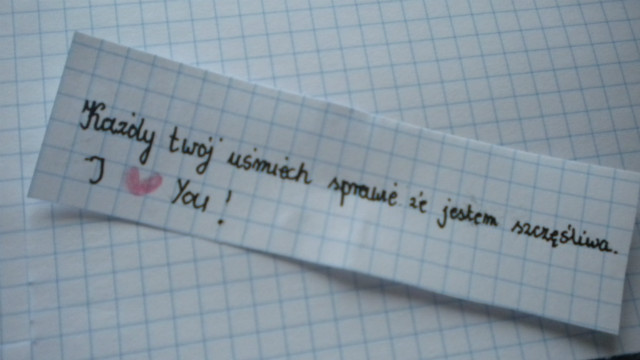 Każdy twój uśmiech sprawie że jestem szczęśliwa.
I ♥ You!